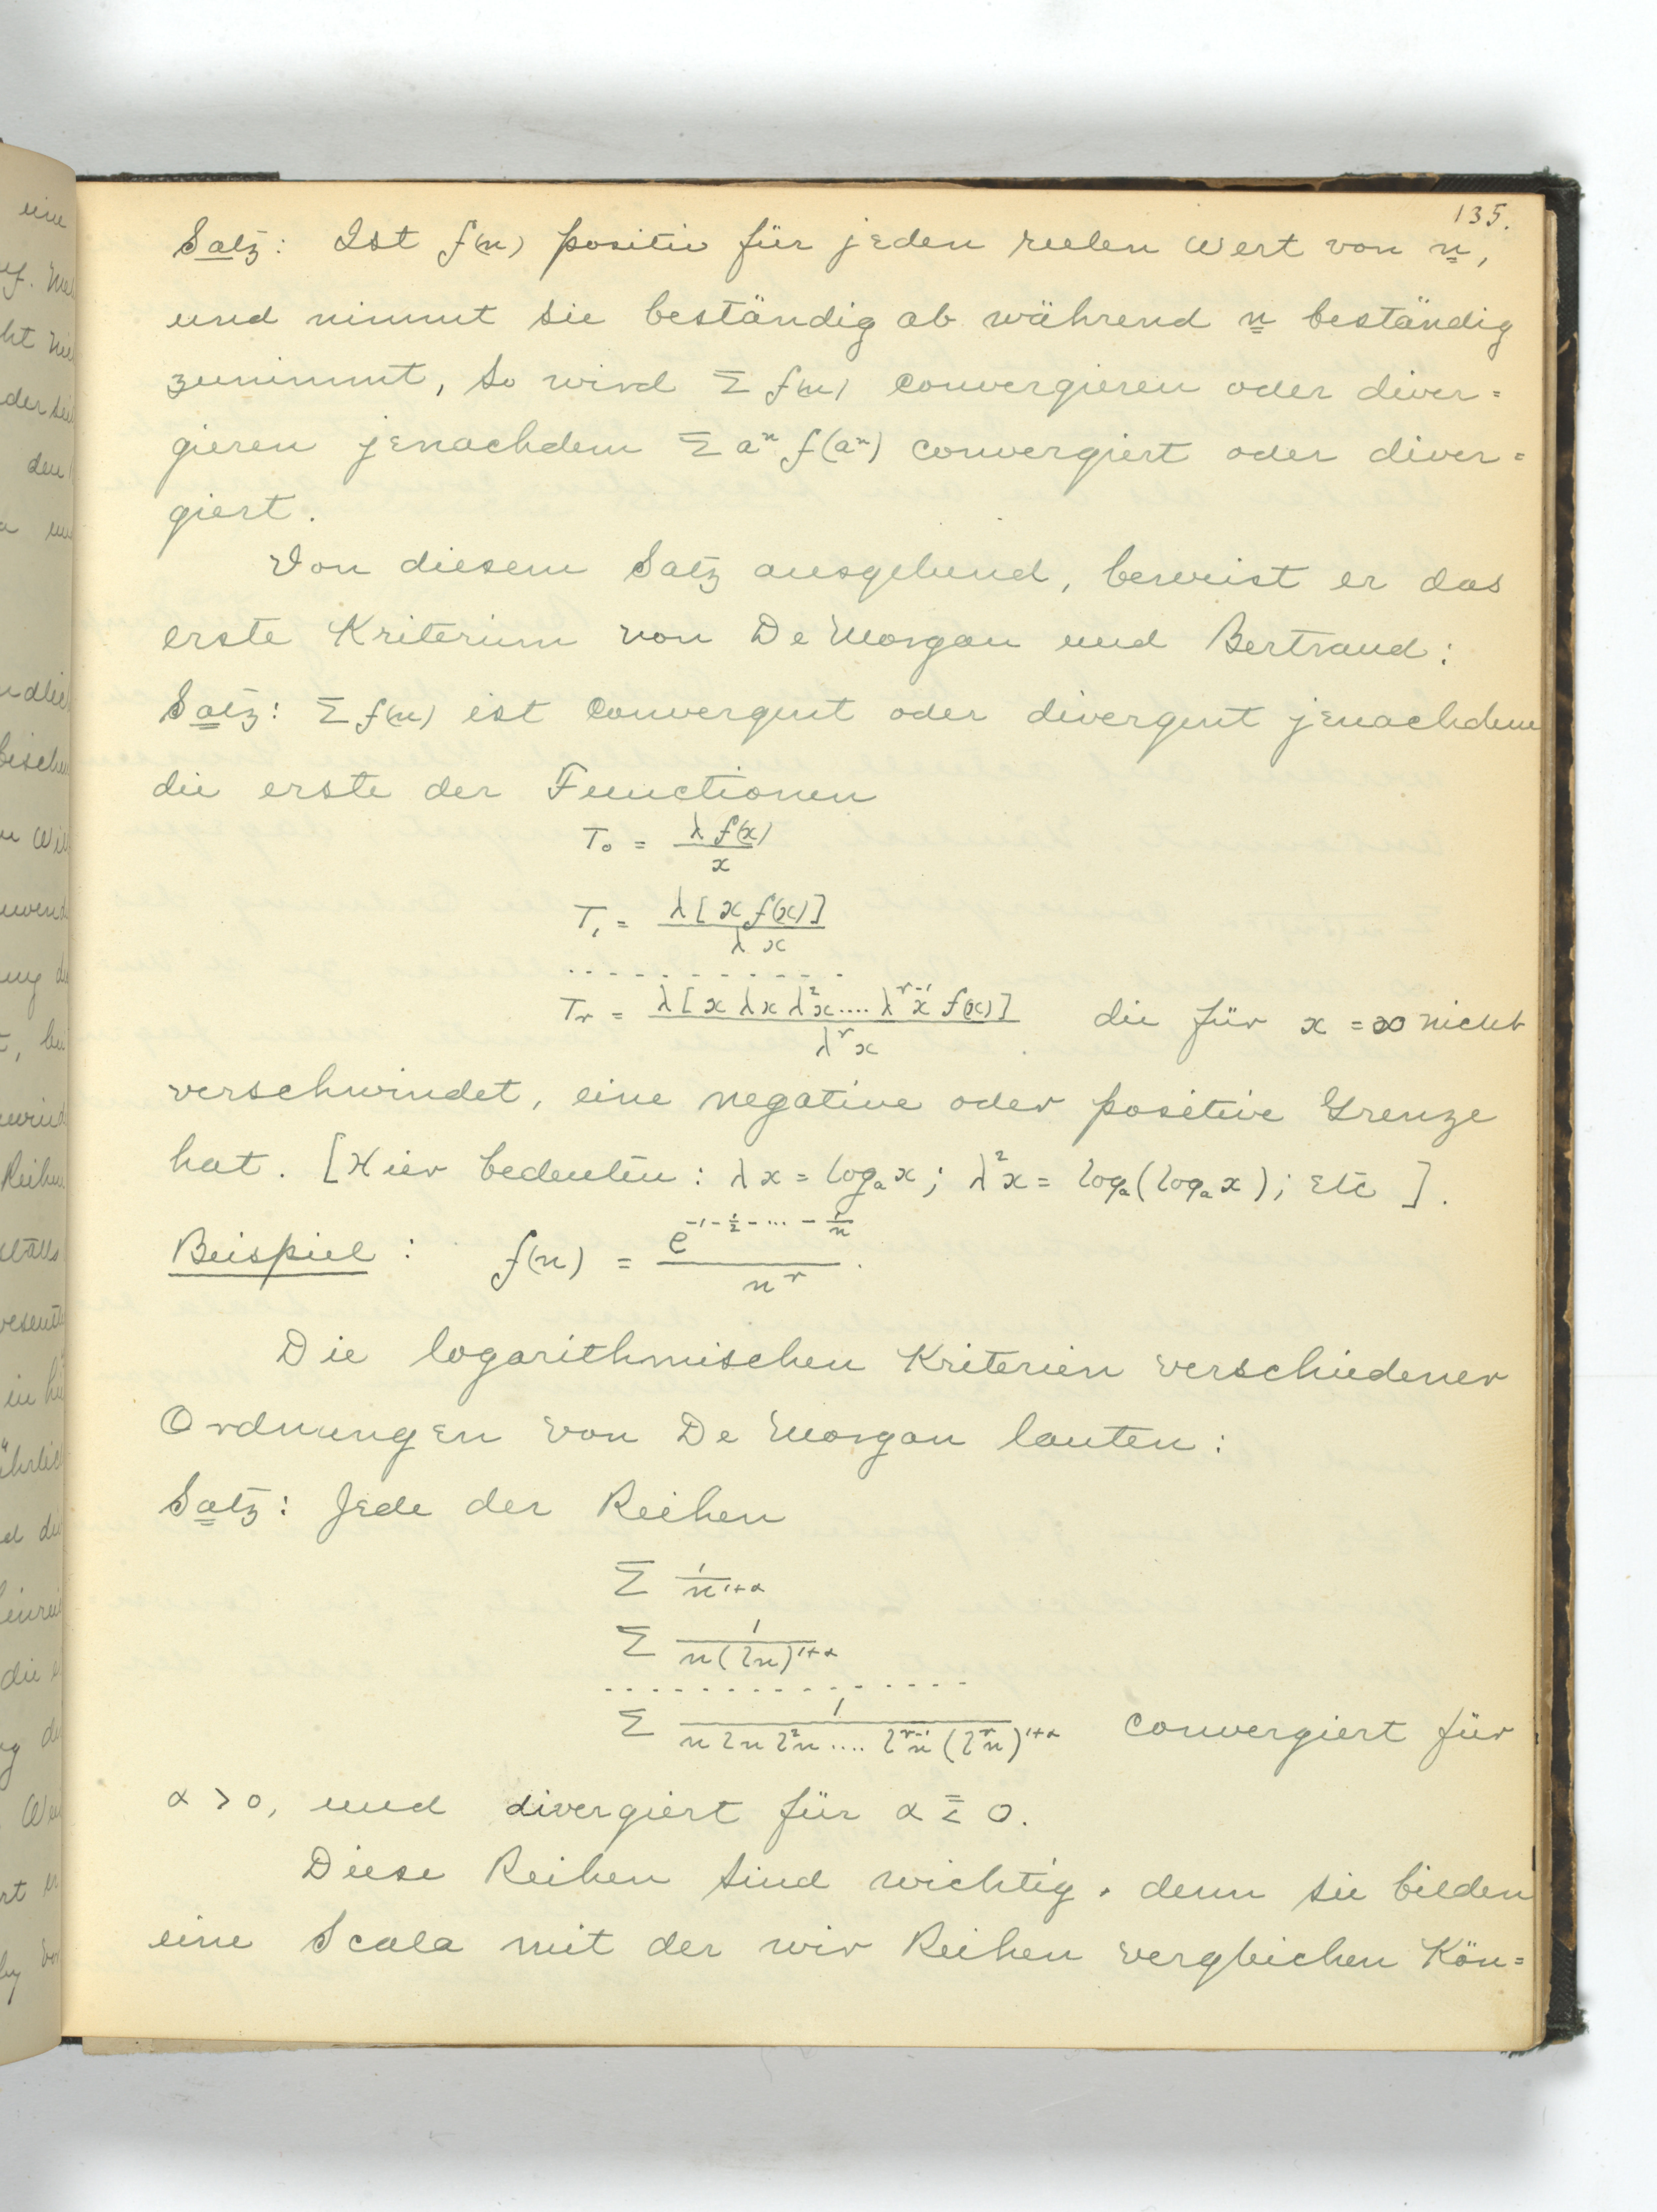 135.
Satz: Ist f(n) positiv für jeden reelen Wert von n,
und nimmt sie beständig ab während n beständig
zunimmt, so wird Σ f(n) convergieren oder diver=
gieren jenachdem Σ aⁿ f(aⁿ) convergiert oder diver=
giert.
Von diesem Satz ausgehend, beweist er das
erste Kriterium von De Morgan und Bertrand:
Satz: Σ f(n) ist convergent oder divergent jenachdem
die erste der Functionen
T₀ = λ f(x) / x
T₁ = λ [x f(x)] / λ x
. . . . . . . . . . . .
Tᵣ = λ [x λx λ²x .... λʳ⁻¹x f(x)] / λʳx die für x = ∞ nicht
verschwindet, eine negative oder positive Grenze
hat. [Hier bedeuten: λx = logₐ x; λ²x = logₐ(logₐ x); etc].
Beispiel: f(n) = e^(-1-½-...-1/n) / nʳ.
Die logarithmischen Kriterien verschiedener
Ordnungen von De Morgan lauten:
Satz: Jede der Reihen
Σ 1 / n^(1+α)
Σ 1 / n(ln)^(1+α)
. . . . . . . . . . . . . . .
Σ 1 / n ln l²n .... lʳ⁻¹n (lʳn)^(1+α) convergiert für
α > 0, und divergiert für α ≦ 0.
Diese Reihen sind wichtig, denn sie bilden
eine Scala mit der wir Reihen vergleichen Kön=